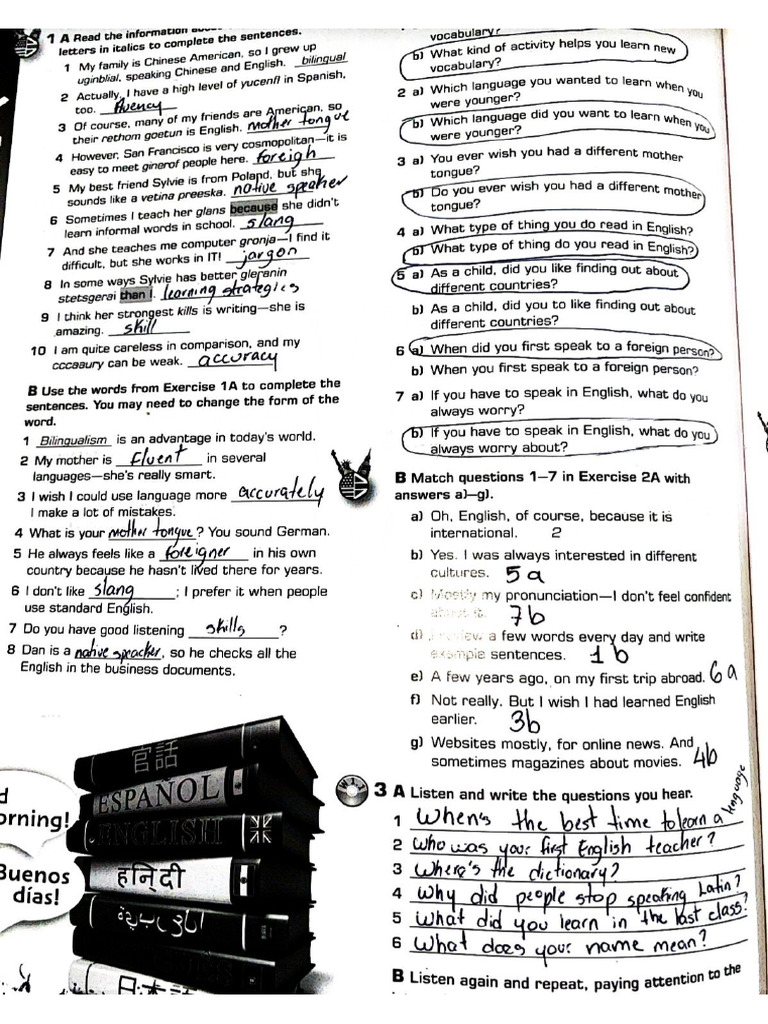 1 A Read the information
letters in italics to complete the sentences.
1 My family is Chinese American, so I grew up
uginblial, speaking Chinese and English. bilingual
2 Actually, I have a high level of yucenfl in Spanish,
too. fluency
3 Of course, many of my friends are American, so
their rethom goetun is English. mother tongue
4 However, San Francisco is very cosmopolitan—it is
easy to meet ginerof people here. foreigh
5 My best friend Sylvie is from Poland, but she
sounds like a vetina preeska. native speaker
6 Sometimes I teach her glans because she didn't
learn informal words in school. slang
7 And she teaches me computer gronja—I find it
difficult, but she works in IT! jargon
8 In some ways Sylvie has better gleranin
stetsgerai than I. learning strategies
9 I think her strongest kills is writing—she is
amazing. skill
10 I am quite careless in comparison, and my
cccaaury can be weak. accuracy
B Use the words from Exercise 1A to complete the
sentences. You may need to change the form of the
word.
1 Bilingualism is an advantage in today's world.
2 My mother is fluent in several
languages—she's really smart.
3 I wish I could use language more accurately
I make a lot of mistakes.
4 What is your mother tongue? You sound German.
5 He always feels like a foreigner in his own
country because he hasn't lived there for years.
6 I don't like slang; I prefer it when people
use standard English.
7 Do you have good listening skills?
8 Dan is a native speacker, so he checks all the
English in the business documents.
官話
ESPAÑOL
ENGLISH
हिन्दी
orning!
Buenos
días!
vocabulary?
b) What kind of activity helps you learn new
vocabulary?
2 a) Which language you wanted to learn when you
were younger?
b) Which language did you want to learn when you
were younger?
3 a) You ever wish you had a different mother
tongue?
b) Do you ever wish you had a different mother
tongue?
4 a) What type of thing you do read in English?
b) What type of thing do you read in English?
5 a) As a child, did you like finding out about
different countries?
b) As a child, did you to like finding out about
different countries?
6 a) When did you first speak to a foreign person?
b) When you first speak to a foreign person?
7 a) If you have to speak in English, what do you
always worry?
b) If you have to speak in English, what do you
always worry about?
B Match questions 1–7 in Exercise 2A with
answers a)–g).
a) Oh, English, of course, because it is
international. 2
b) Yes. I was always interested in different
cultures. 5a
c) Mostly my pronunciation—I don't feel confident
about it. 7b
d) I review a few words every day and write
example sentences. 1b
e) A few years ago, on my first trip abroad. 6a
f) Not really. But I wish I had learned English
earlier. 3b
g) Websites mostly, for online news. And
sometimes magazines about movies. 4b
3 A Listen and write the questions you hear.
1 When's the best time to learn a language
2 Who was your first English teacher?
3 Where's the dictionary?
4 Why did people stop speaking Latin?
5 What did you learn in the last class?
6 What does your name mean?
B Listen again and repeat, paying attention to the